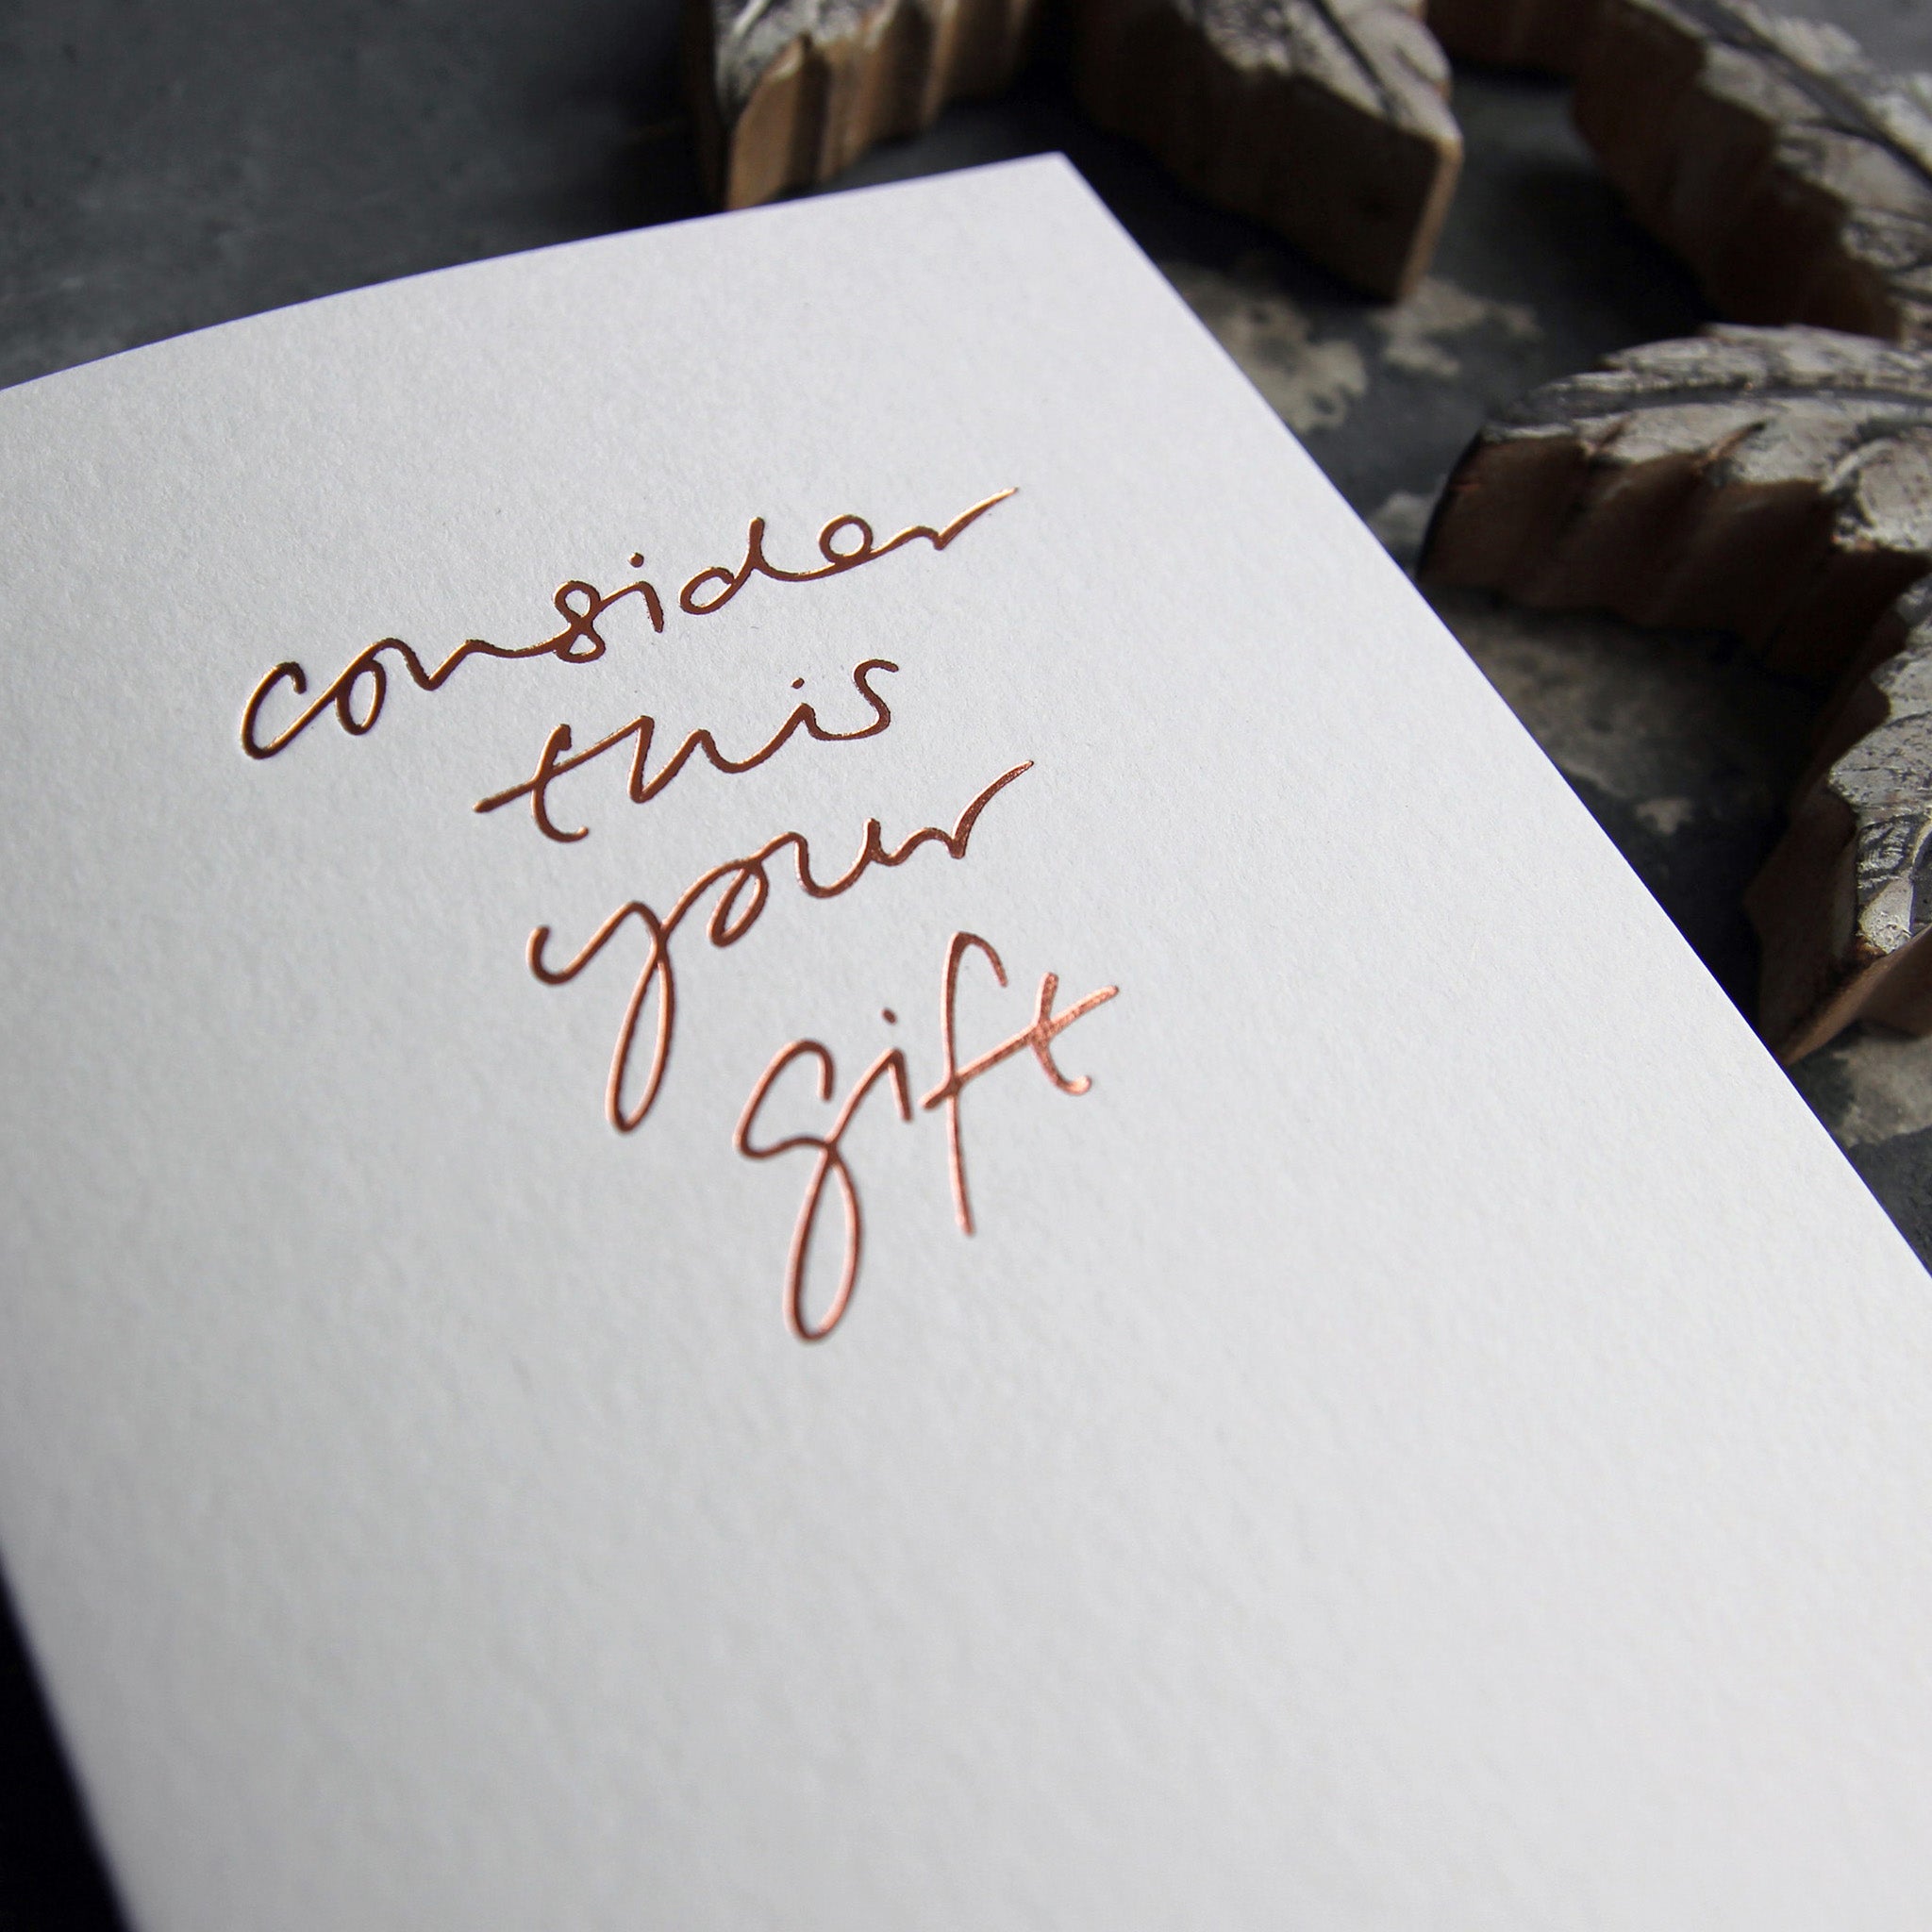 consider
this
your
gift